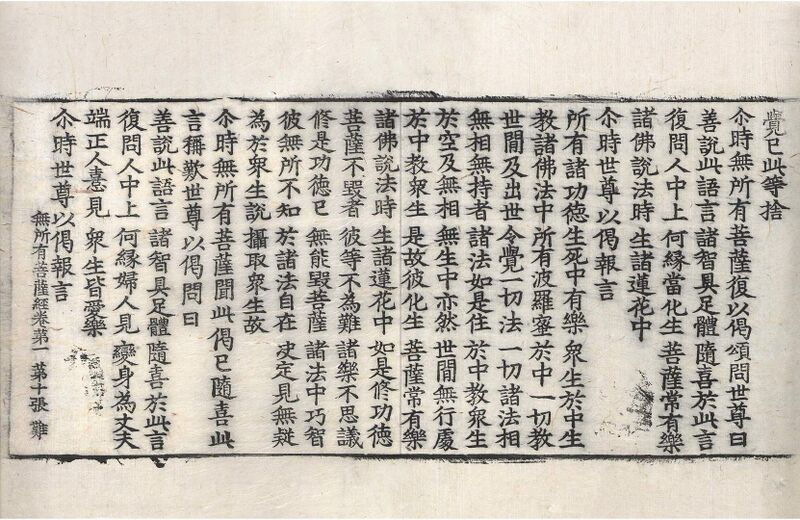 覺已此等捨
尒時無所有菩薩復以偈頌問世尊曰
善說此語言 諸智具足體 隨喜於此言
復問人中上 何緣當化生 菩薩常有樂
諸佛說法時 生諸蓮花中
尒時世尊以偈報言
所有諸功德 生死中有樂 衆生於中生
教諸佛法中 所有波羅蜜 於中一切教
世間及出世 令覺一切法 一切諸法相
無相無持者 諸法如是住 於中教衆生
於空及無相 無生中亦然 世間無行處
於中教衆生 是故彼化生 菩薩常有樂
諸佛說法時 生諸蓮花中 如是修功德
菩薩不毀者 彼等不為難 諸樂不思議
修是功德已 無能毀菩薩 諸法中巧智
彼無所不知 於諸法自在 史定見無疑
為於衆生說 攝取衆生故
尒時無所有菩薩聞此偈已隨喜此
言稱歎世尊以偈問曰
善說此語言 諸智具足體 隨喜於此言
復問人中上 何緣婦人見 變身為丈夫
端正人憙見 衆生皆愛樂
尒時世尊以偈報言
無所有菩薩經卷第一 第十張 難